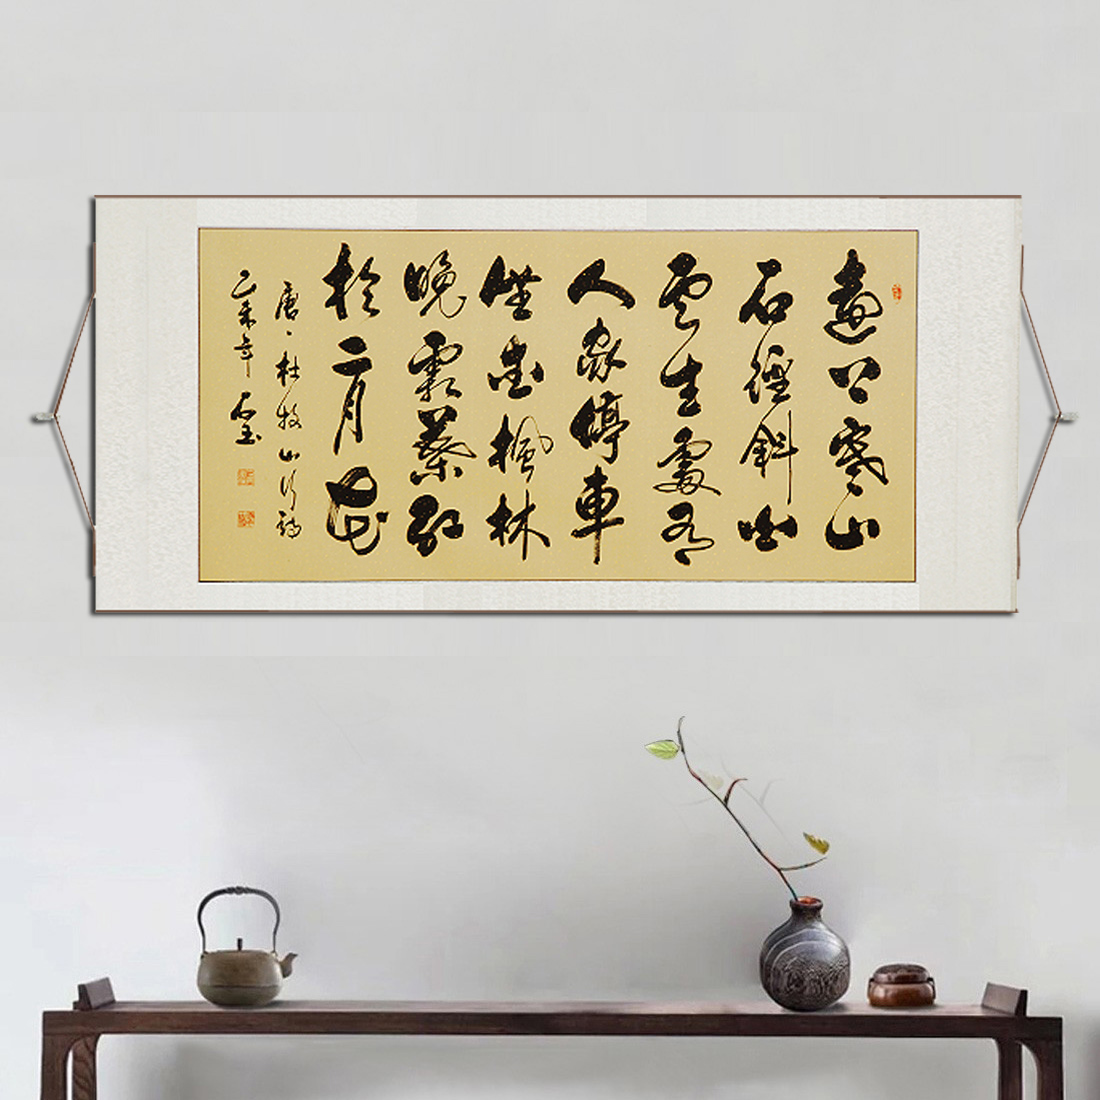 遠上寒山
石徑斜白
雲生處有
人家停車
坐愛楓林
晚霜葉紅
於二月花
唐、杜牧山行詩
乙未年